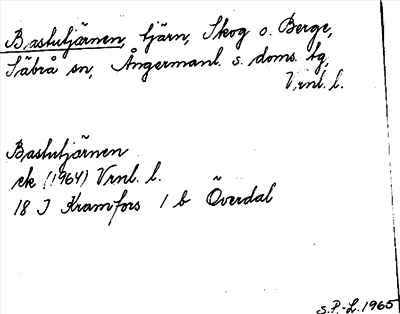 Bastutjärnen, tjärn, Skog o. Berge,
Säbrå sn, Ångermanl. s. doms. tg,
Vrnl. l.
Bastutjärnen
ek (1964) Vrnl. l.
18 J Kramfors 1 b Överdal
S.P.-L. 1965